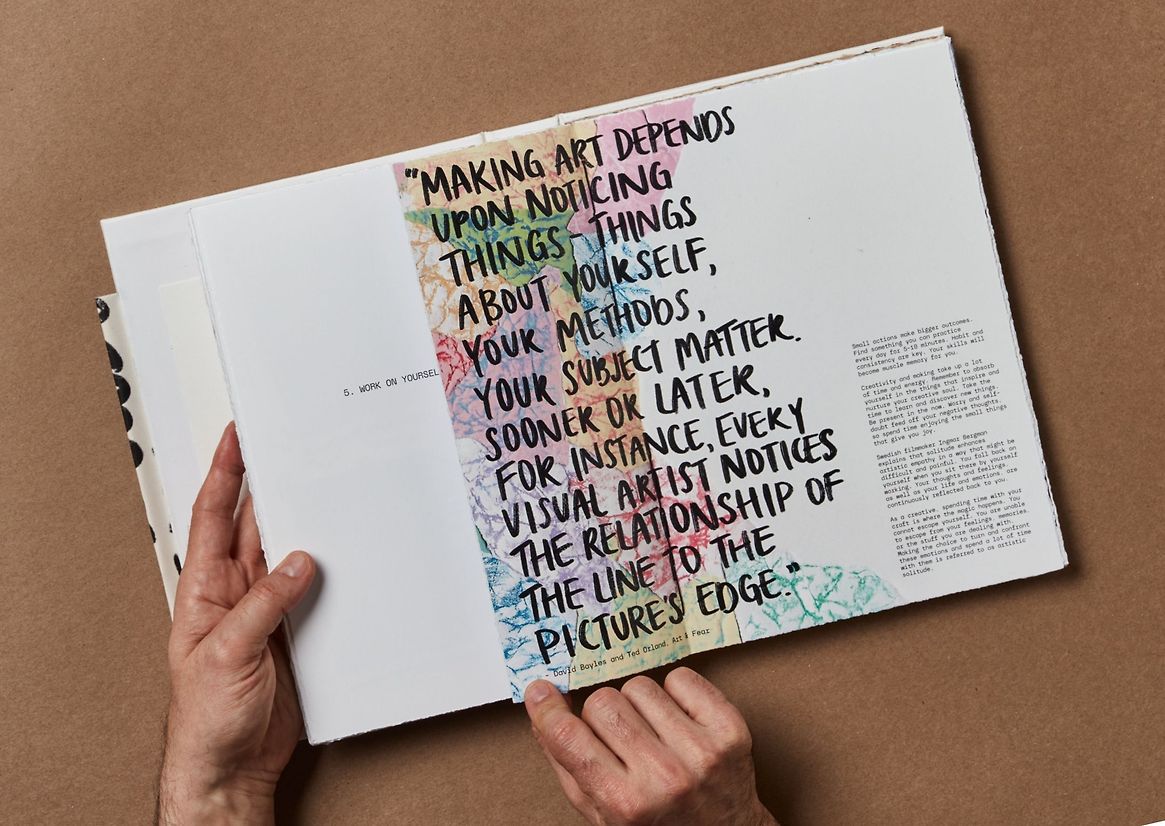 5. WORK ON YOURSEL
"MAKING ART DEPENDS
UPON NOTICING
THINGS - THINGS
ABOUT YOURSELF,
YOUR METHODS,
YOUR SUBJECT MATTER.
SOONER OR LATER,
FOR INSTANCE, EVERY
VISUAL ARTIST NOTICES
THE RELATIONSHIP OF
THE LINE TO THE
PICTURE'S EDGE."
- David Bayles and Ted Orland, Art & Fear
Small actions make bigger outcomes.
Find something you can practice
every day for 5-10 minutes. Habit and
consistency are key. Your skills will
become muscle memory for you.
Creativity and making take up a lot
of time and energy. Remember to absorb
yourself in the things that inspire and
nurture your creative soul. Take the
time to learn and discover new things.
Be present in the now. Worry and self-
doubt feed off your negative thoughts,
so spend time enjoying the small things
that give you joy.
Swedish filmmaker Ingmar Bergman
explains that solitude enhances
artistic empathy in a way that might be
difficult and painful. You fall back on
yourself when you sit there by yourself
working. Your thoughts and feelings,
as well as your life and emotions, are
continuously reflected back to you.
As a creative, spending time with your
craft is where the magic happens. You
cannot escape yourself. You are unable
to escape from your feelings, memories,
or the stuff you are dealing with.
Making the choice to turn and confront
these emotions and spend a lot of time
with them is referred to as artistic
solitude.